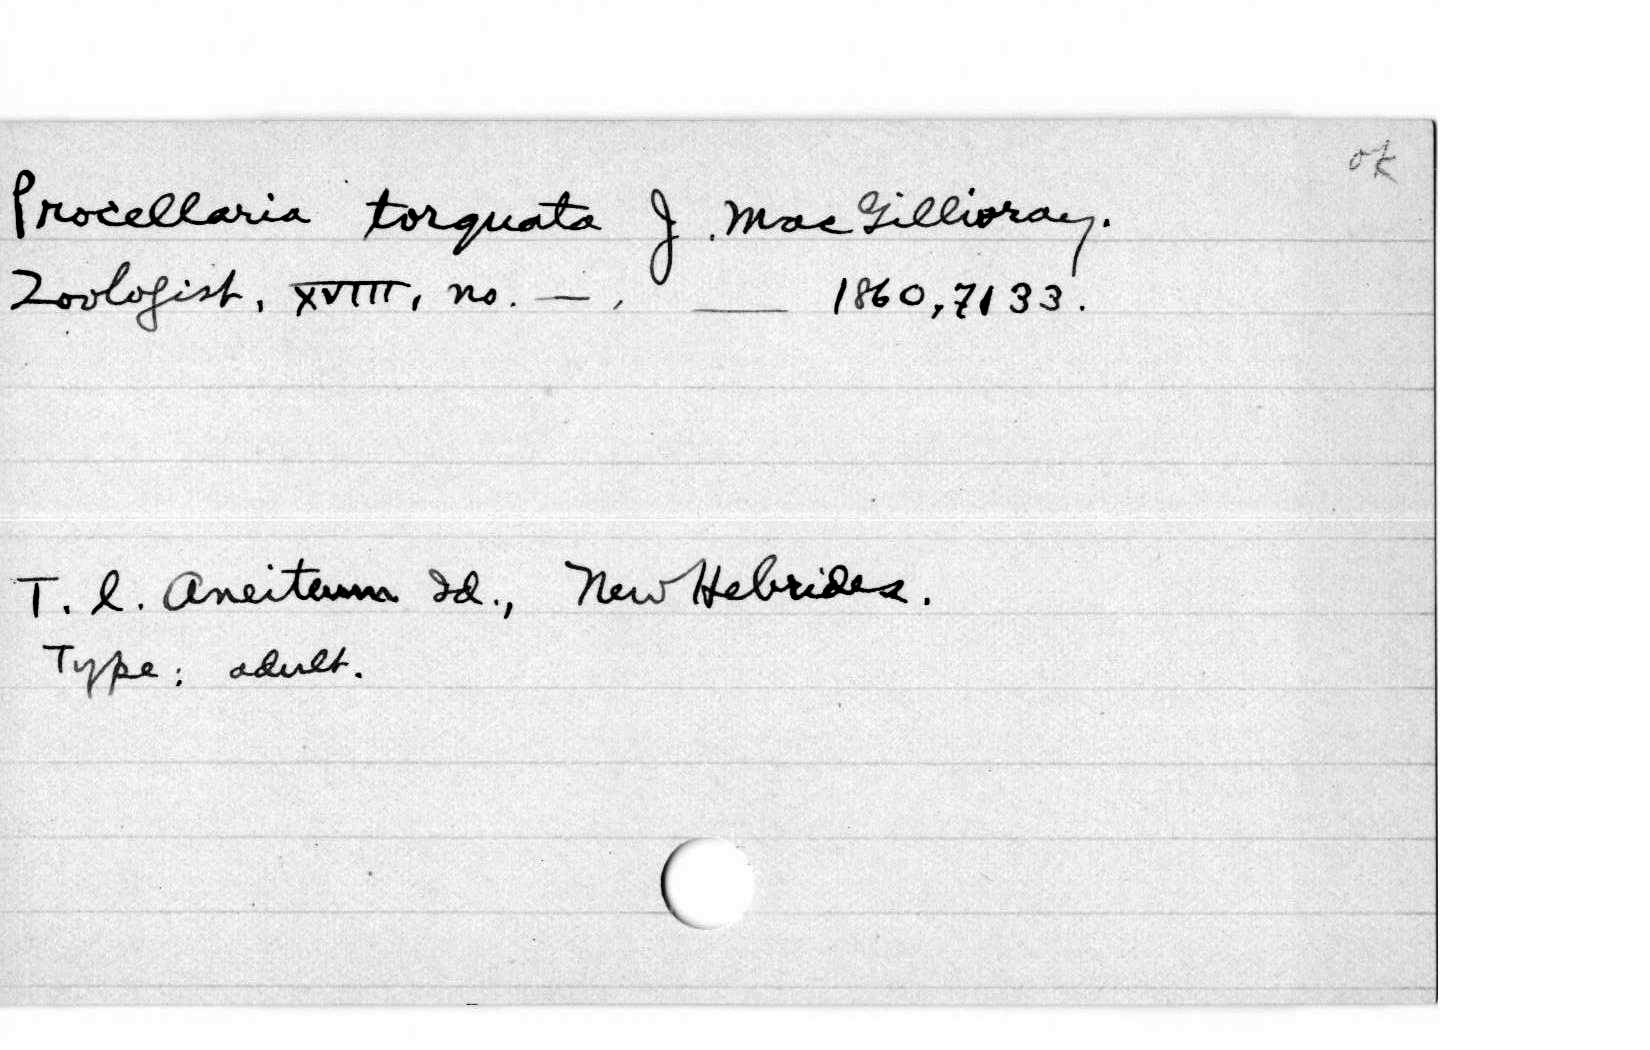 ok
Procellaria torquata J. MacGillivray.
Zoologist, XVIII, no. —, — 1860, 7133.
T. l. Aneiteum Id., New Hebrides.
Type: adult.